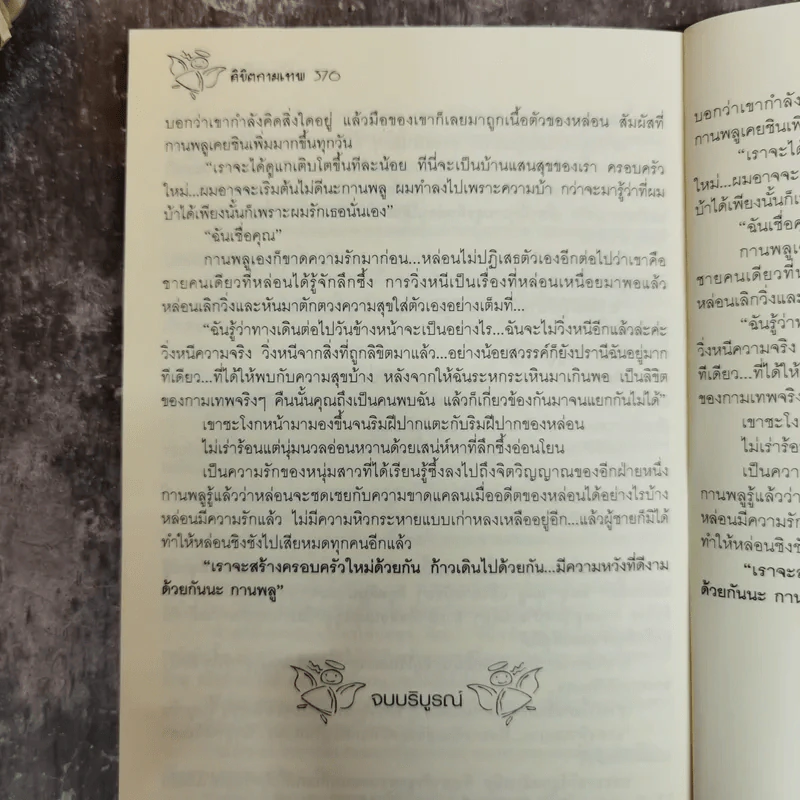 ลิขิตกามเทพ 376
บอกว่าเขากำลังคิดสิ่งใดอยู่ แล้วมือของเขาก็เลยมาถูกเนื้อตัวของหล่อน สัมผัสที่
กานพลูเคยชินเพิ่มมากขึ้นทุกวัน
“เราจะได้ดูแกเติบโตขึ้นทีละน้อย ที่นี่จะเป็นบ้านแสนสุขของเรา ครอบครัว
ใหม่...ผมอาจจะเริ่มต้นไม่ดีนะกานพลู ผมทำลงไปเพราะความบ้า กว่าจะมารู้ว่าที่ผม
บ้าได้เพียงนั้นก็เพราะผมรักเธอนั่นเอง”
“ฉันเชื่อคุณ”
กานพลูเองก็ขาดความรักมาก่อน...หล่อนไม่ปฏิเสธตัวเองอีกต่อไปว่าเขาคือ
ชายคนเดียวที่หล่อนได้รู้จักลึกซึ้ง การวิ่งหนีเป็นเรื่องที่หล่อนเหนื่อยมาพอแล้ว
หล่อนเลิกวิ่งและหันมาตักตวงความสุขใส่ตัวเองอย่างเต็มที่...
“ฉันรู้ว่าทางเดินต่อไปวันข้างหน้าจะเป็นอย่างไร...ฉันจะไม่วิ่งหนีอีกแล้วล่ะค่ะ
วิ่งหนีความจริง วิ่งหนีจากสิ่งที่ถูกลิขิตมาแล้ว...อย่างน้อยสวรรค์ก็ยังปรานีฉันอยู่มาก
ทีเดียว...ที่ได้ให้พบกับความสุขบ้าง หลังจากให้ฉันระหกระเหินมาเกินพอ เป็นลิขิต
ของกามเทพจริงๆ คืนนั้นคุณถึงเป็นคนพบฉัน แล้วก็เกี่ยวข้องกันมาจนแยกกันไม่ได้”
เขาชะโงกหน้ามามองขึ้นจนริมฝีปากแตะกับริมฝีปากของหล่อน
ไม่เร่าร้อนแต่นุ่มนวลอ่อนหวานด้วยเสน่ห์หาที่ลึกซึ้งอ่อนโยน
เป็นความรักของหนุ่มสาวที่ได้เรียนรู้ซึ้งลงไปถึงจิตวิญญาณของอีกฝ่ายหนึ่ง
กานพลูรู้แล้วว่าหล่อนจะชดเชยกับความขาดแคลนเมื่ออดีตของหล่อนได้อย่างไรบ้าง
หล่อนมีความรักแล้ว ไม่มีความหิวกระหายแบบเก่าหลงเหลืออยู่อีก...แล้วผู้ชายก็มิได้
ทำให้หล่อนชิงชังไปเสียหมดทุกคนอีกแล้ว
“เราจะสร้างครอบครัวใหม่ด้วยกัน ก้าวเดินไปด้วยกัน...มีความหวังที่ดีงาม
ด้วยกันนะ กานพลู”
จบบริบูรณ์
บอกว่าเขากำลัง
กานพลูเคยชินเ
“เราจะได้
ใหม่...ผมอาจจะ
บ้าได้เพียงนั้นก็เ
“ฉันเชื่อค
กานพลูเ
ชายคนเดียวที่
หล่อนเลิกวิ่งแล
“ฉันรู้ว่า
วิ่งหนีความจริง
ทีเดียว...ที่ได้ให้
ของกามเทพจริง
เขาชะโง
ไม่เร่าร้อ
เป็นความ
กานพลูรู้แล้วว่า
หล่อนมีความรัก
ทำให้หล่อนชิงชั
“เราจะส
ด้วยกันนะ กา